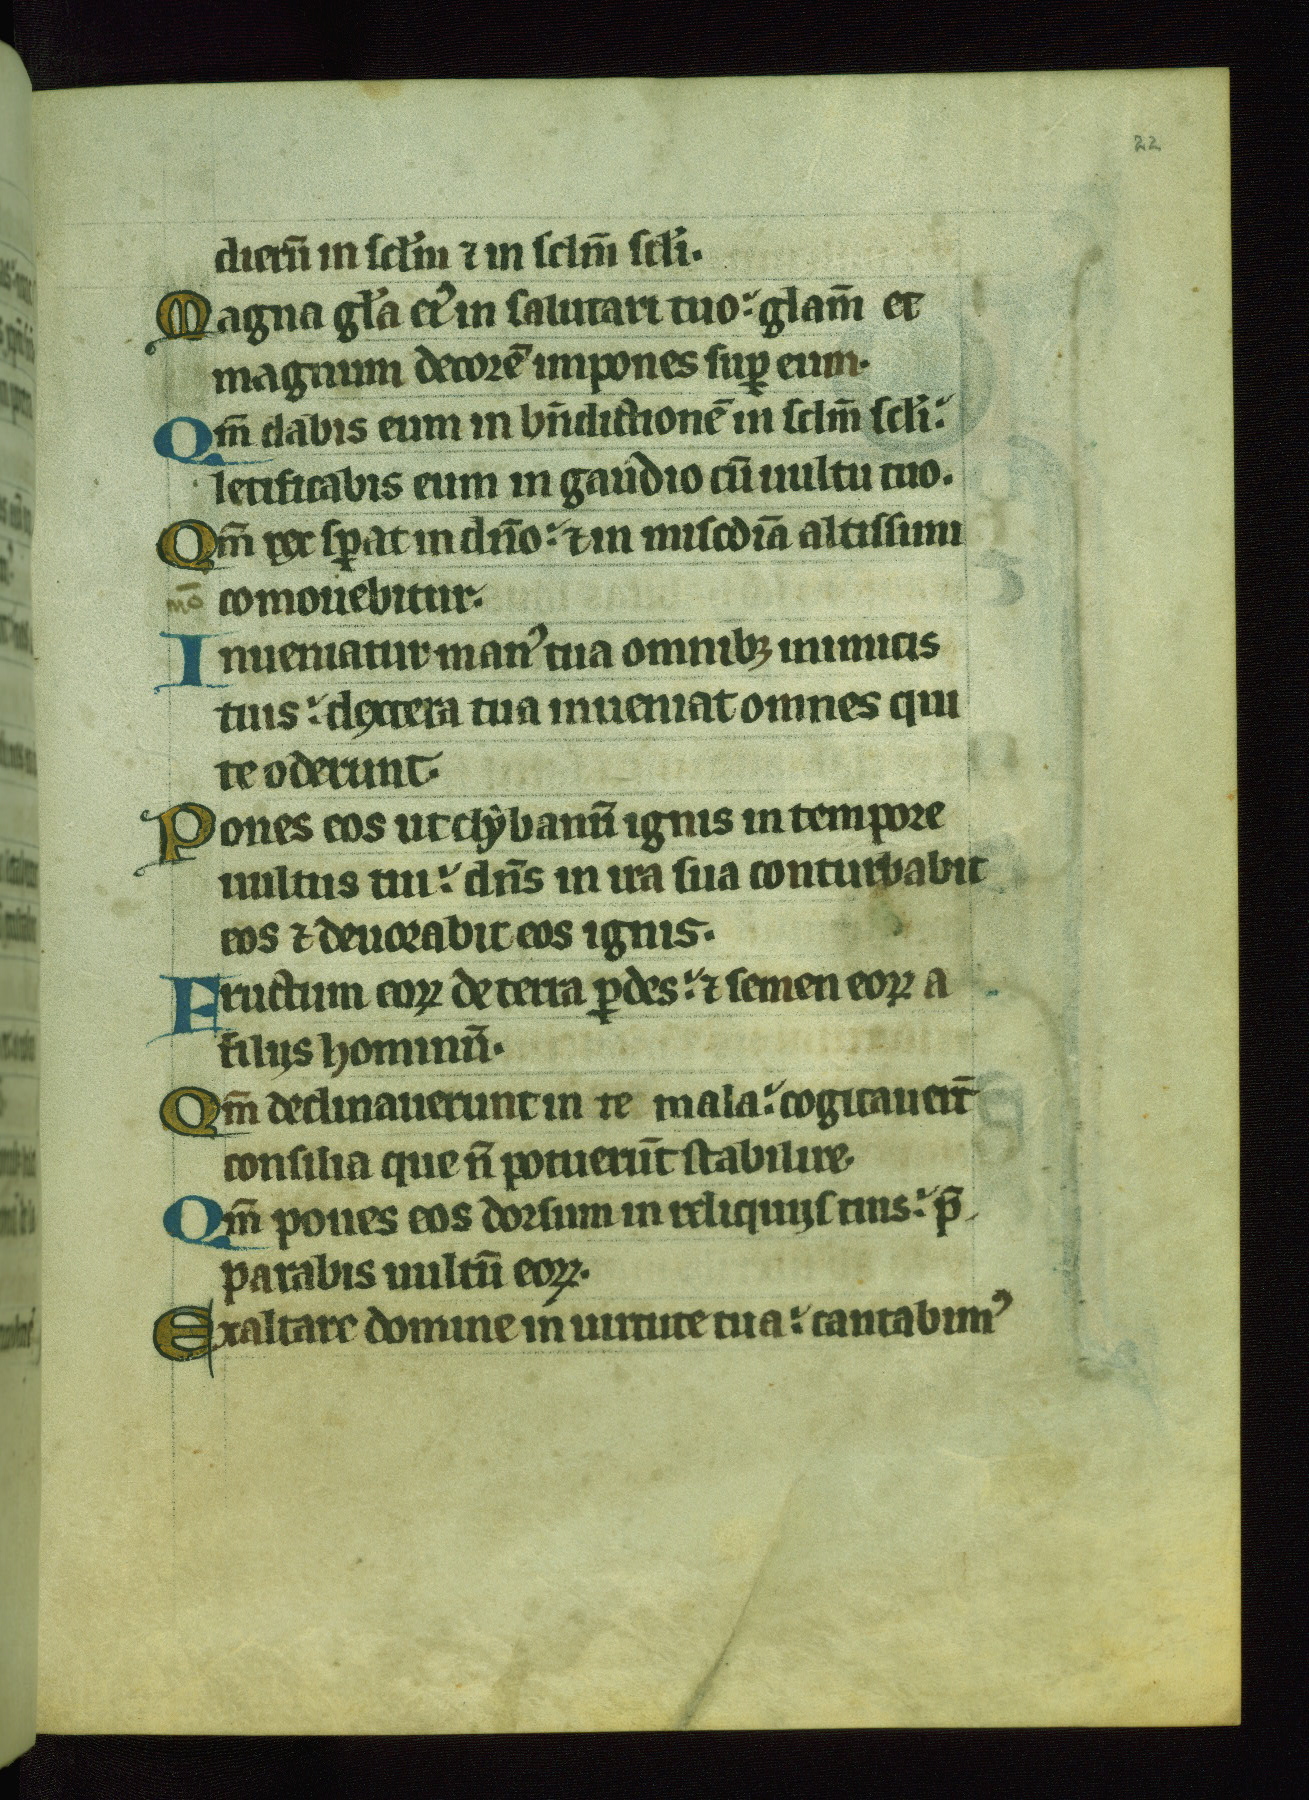 22
dierū in scl̄m ⁊ in sclm̄ scl̄i.
Magna gl̄a ei᾽ in salutari tuo: glam̄ et
magnum decorē impones suꝑ eum.
Qm̄ dabis eum in bn̄dictionē in sclm̄ scl̄i:
letificabis eum in gaudio cū uultu tuo.
Qm̄ rex sꝑat in dn̄o: ⁊ in miscd̄iā altissimi
nō comouebitur.
Inueniatur man᾽ tua omnibꝫ inimicis
tuis: dextera tua inueniat omnes qui
te oderunt.
Pones eos ut clybanū ignis in tempore
uultus tui: dn̄s in ira sua conturbabit
eos ⁊ deuorabit eos ignis.
Fructum eoꝝ de terra ꝑdes: ⁊ semen eoꝝ a
filijs hominū.
Qm̄ declinauerunt in te mala: cogitauert̄
consilia que n̄ potuerūt stabilire.
Qm̄ pones eos dorsum in reliquijs tuis: p̄
parabis uultū eoꝝ.
Exaltare domine in uirtute tua: cantabim᾽